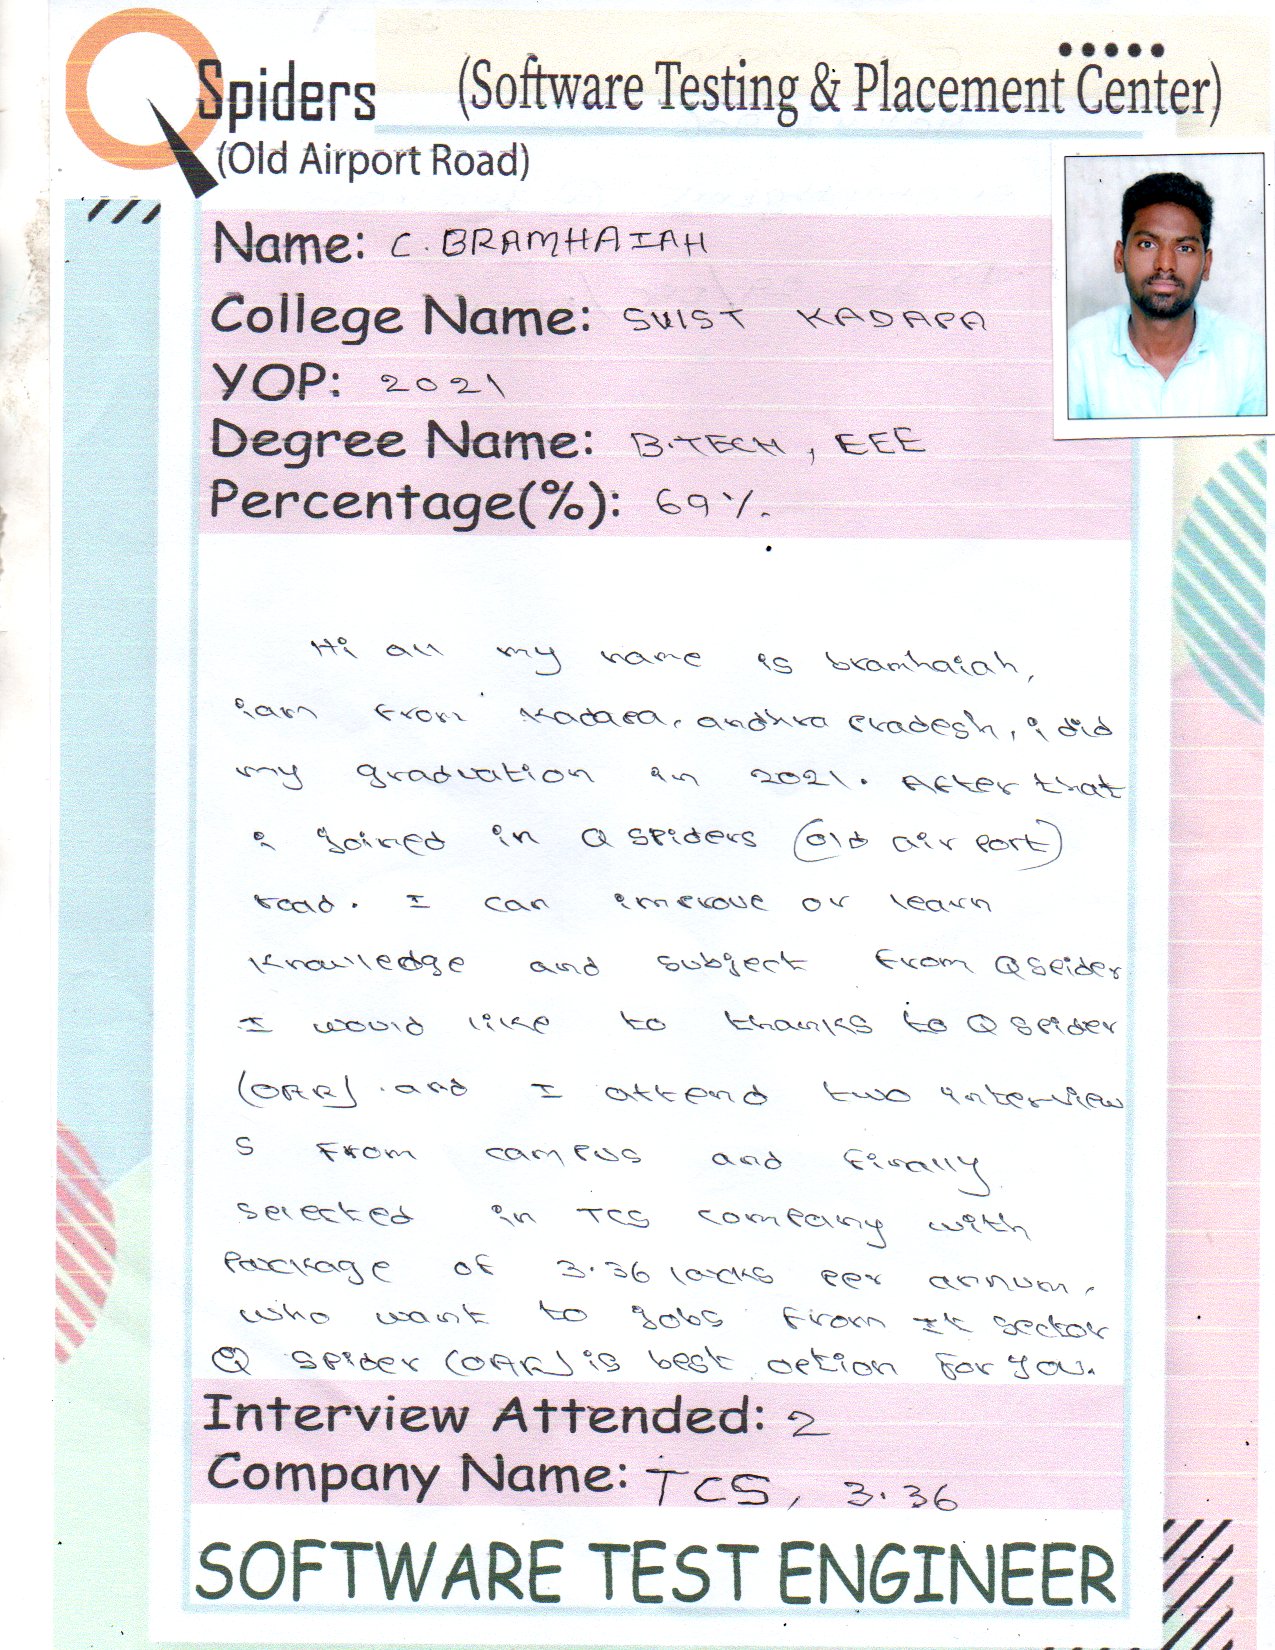 QSpiders (Software Testing & Placement Center)
(Old Airport Road)
Name: C. BRAMHAIAH
College Name: SWIST KADAPA
YOP: 2021
Degree Name: B.TECH, EEE
Percentage(%): 69%.
Hi all my name is bramhaiah,
iam from Kadapa, andhra Pradesh, i did
my graduation in 2021. After that
i joined in Q SPiders (old air port)
road. I can improve or learn
Knowledge and subject from QSpider
I would like to thanks to Q Spider
(OAR) .and I attend two interview
s from campus and finally
selected in TCS company with
Package of 3.36 lacks per annum.
who want to jobs from It sector
Q Spider (OAR) is best option for you.
Interview Attended: 2
Company Name: TCS, 3.36
SOFTWARE TEST ENGINEER